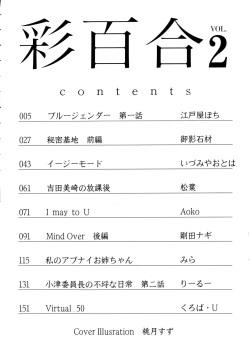 彩百合 VOL. 2
contents
005 ブルージェンダー 第一話 江戸屋ぽち
027 秘密基地 前編 御影石材
043 イージーモード いづみやおとは
061 吉田美崎の放課後 松葉
071 I may to U Aoko
091 Mind Over 後編 剛田ナギ
115 私のアブナイお姉ちゃん みら
131 小津委員長の不埒な日常 第二話 りーるー
151 Virtual 50 くろば・U
Cover Illusration 桃月すず